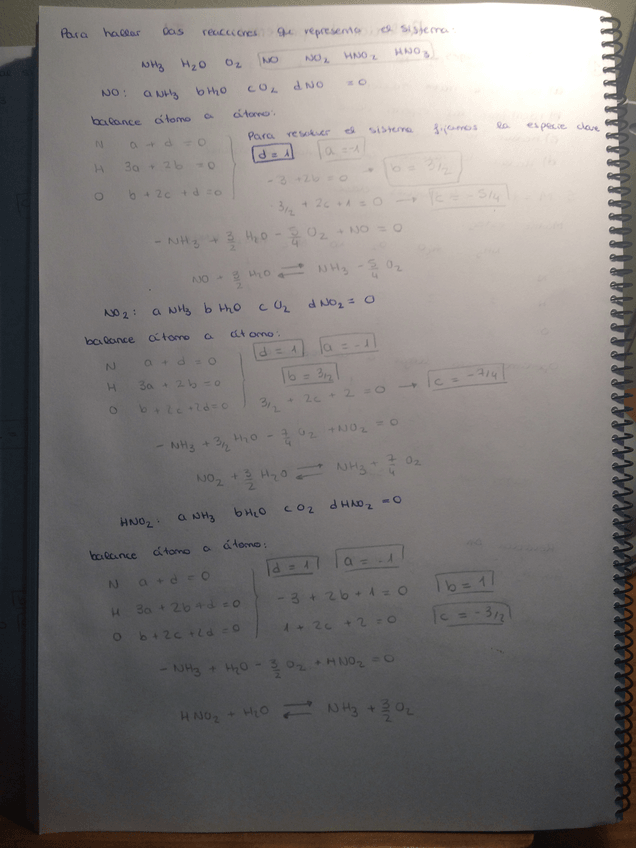 Para hallar las reacciones que representa el sistema:
NH3 H2O O2 NO NO2 HNO2 HNO3
NO: a NH3 b H2O c O2 d NO = 0
balance átomo a átomo:
Para resolver el sistema fijamos la especie clave
N a + d = 0
d = 1 a = -1
H 3a + 2b = 0
-3 + 2b = 0 → b = 3/2
O b + 2c + d = 0
3/2 + 2c + 1 = 0 → c = -5/4
- NH3 + 3/2 H2O - 5/4 O2 + NO = 0
NO + 3/2 H2O ⇄ NH3 - 5/4 O2
NO2: a NH3 b H2O c O2 d NO2 = 0
balance átomo a átomo:
N a + d = 0
d = 1 a = -1
H 3a + 2b = 0
b = 3/2
O b + 2c + 2d = 0
3/2 + 2c + 2 = 0 → c = -7/4
- NH3 + 3/2 H2O - 7/4 O2 + NO2 = 0
NO2 + 3/2 H2O ⇄ NH3 + 7/4 O2
HNO2: a NH3 b H2O c O2 d HNO2 = 0
balance átomo a átomo:
N a + d = 0
d = 1 a = -1
H 3a + 2b + d = 0
-3 + 2b + 1 = 0 b = 1
O b + 2c + 2d = 0
1 + 2c + 2 = 0 c = -3/2
- NH3 + H2O - 3/2 O2 + HNO2 = 0
HNO2 + H2O ⇄ NH3 + 3/2 O2